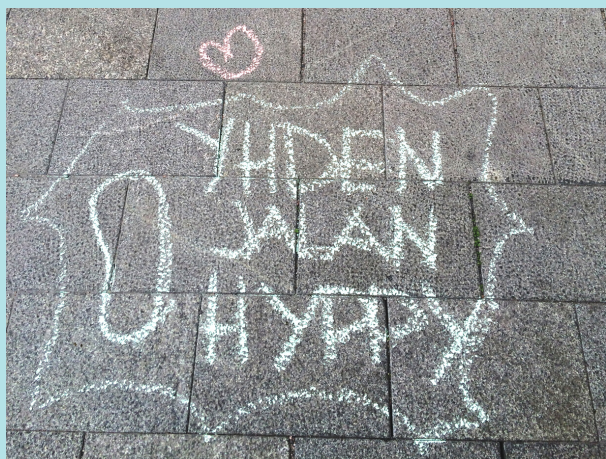 YHDEN
JALAN
HYPPY